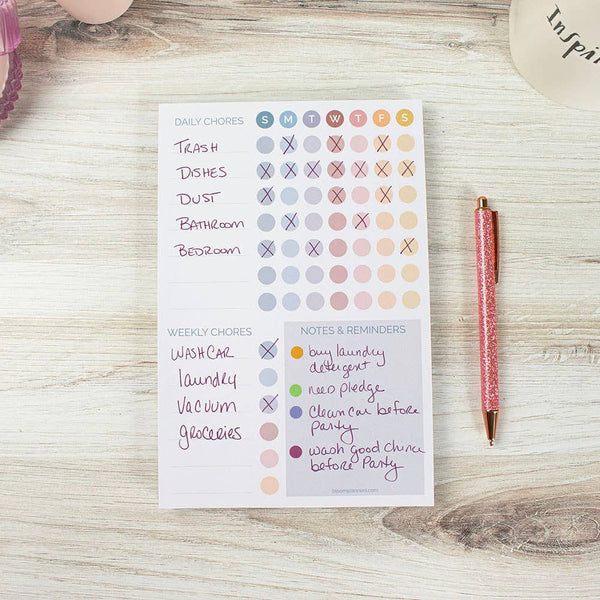 Inspir
DAILY CHORES S M T W T F S
TRASH
DISHES
DUST
BATHROOM
BEDROOM
WEEKLY CHORES
WASH CAR
laundry
VACUUM
groceries
NOTES & REMINDERS
buy laundry
detergent
need pledge
Clean car before
Party
wash good china
before Party
bloomplanners.com